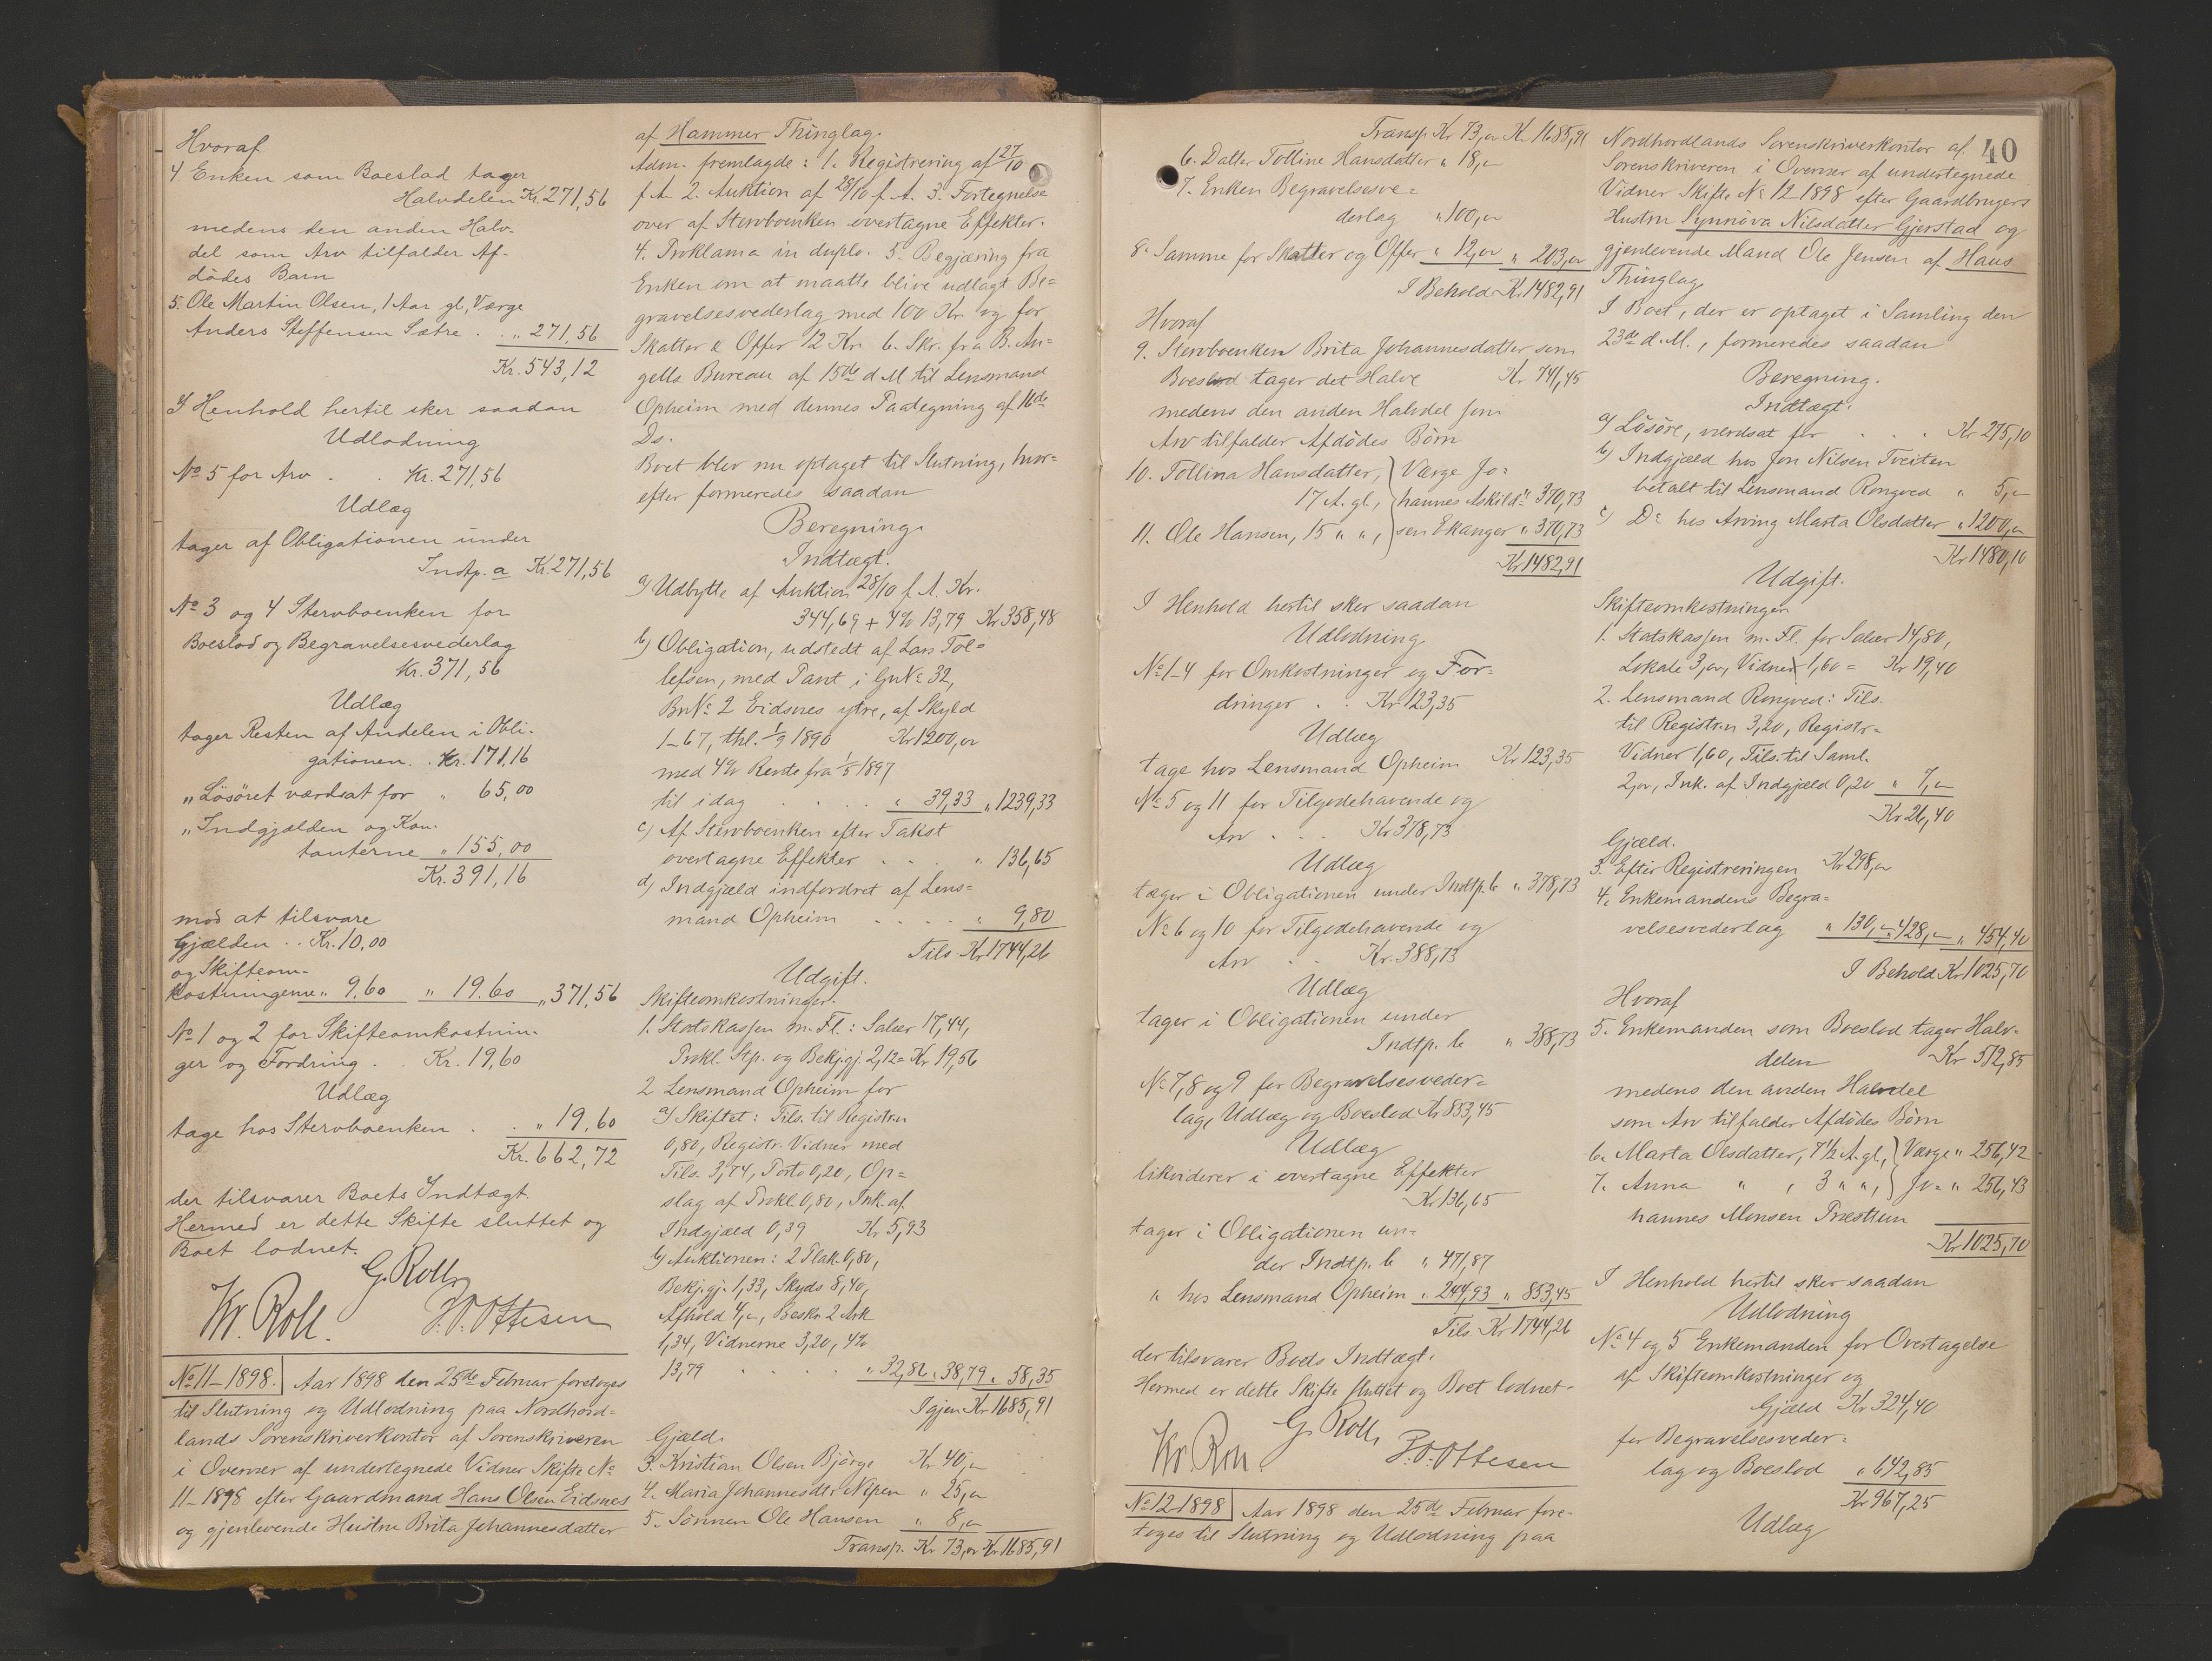 Hvoraf
4. Enken som Boeslod tager
Halvdelen Kr. 271,56
medens den anden Halv-
del som Arv tilfalder Af-
dödes Barn
5. Ole Martin Olsen, 1 Aar gl, Værge
Anders Steffensen Sætre . „ 271,56
Kr. 543,12
I Henhold hertil sker saadan
Udlodning
No 5 for Arv . . Kr. 271,56
Udlæg
tager af Obligationen under
Indtp. a Kr. 271,56
No 3 og 4 Stervboenken for
Boeslod og Begravelsesvederlag
Kr. 371,56
Udlæg
tager Resten af Andelen i Obli-
gationen . . Kr. 171,16
„ Lösöret værdsat for „ 65,00
„ Indgjælden og Kon-
tanterne „ 155,00
Kr. 391,16
mod at tilsvare
Gjælden . . Kr. 10,00
og Skifteom-
kostningerne „ 9,60 „ 19.60 „ 371,56
No 1 og 2 for Skifteomkostnin-
ger og Fordring . . Kr. 19,60
Udlæg
tage hos Stervboenken . . „ 19,60
Kr. 662,72
der tilsvarer Boets Indtægt.
Hermed er dette Skifte sluttet og
Boet lodnet.
G. Roll
Kr. Roll. P. O. Ottesen
No 11-1898. Aar 1898 den 25de Februar foretoges
til Slutning og Udlodning paa Nordhord-
lands Sorenskriverkontor af Sorenskriveren
i Overvær af undertegnede Vidner Skifte No
11-1898 efter Gaardmand Hans Olsen Eidsnes
og gjenlevende Hustru Brita Johannesdatter
af Hammer Thinglag.
Adm. fremlagde: 1. Registrering af 27/10
f. A. 2. Auktion af 28/10 f. A. 3. Fortegnelse
over af Stervboenken overtagne Effekter.
4. Proklama in duplo. 5. Begjæring fra
Enken om at maatte blive udlagt Be-
gravelsesvederlag med 100 Kr. og for
Skatter & Offer 12 Kr. 6. Skr. fra B. An-
gells Bureau af 15de d M til Lensmand
Opheim med dennes Paategning af 16de
Ds.
Boet blev nu optaget til Slutning, hvor-
efter formeredes saadan
Beregning.
Indtægt.
a) Udbytte af Auktion 28/10 f. A. Kr.
344,69 + 4% 13,79 Kr 358,48
b) Obligation, udstedt af Lars Tol-
lefsen, med Pant i Gn No 32,
Bn No 2 Eidsnes ytre, af Skyld
1-67, thl. 1/9 1890 Kr 1200,00
med 4% Rente fra 1/5 1897
til idag . . . . „ 39,33 „ 1239,33
c) Af Stervboenken efter Takst
overtagne Effekter . . . „ 136,65
d) Indgjæld indfordret af Lens-
mand Opheim . . . . „ 9,80
Tils. Kr 1744,26
Udgift.
Skifteomkostninger.
1. Statskassen m. Fl.: Salær 17,44,
Prokl. Stp. og Bekj.gj. 2,12 = Kr 19,56
2 Lensmand Opheim for
a) Skiftet: Tils. til Registr.n
0,80, Registr. Vidner med
Tils. 3,74, Porto 0,20, Op-
slag af Prokl. 0,80, Ink. af
Indgjæld 0,39 Kr. 5,93
b) Auktionen: 2 Plak. 0,80,
Bekj.gj. 1,33, Skyds 8,40,
Afhold 4,-, Beskr. 2 Ark
1,34, Vidnerne 3,20, 4%
13,79 . . . . „ 32,86 „ 38,79 „ 58,35
Igjen Kr 1685,91
Gjæld.
3. Kristian Olsen Björge Kr. 40,-
4. Maria Johannesdtr Nipen „ 25,-
5. Sönnen Ole Hansen „ 8,-
Transp. Kr 73,- Kr. 1685,91
Transp. Kr 73,- Kr. 1685,91
6. Datter Tolline Hansdatter „ 18,-
7. Enken Begravelsesve-
derlag „ 100,-
8. Samme for Skatter og Offer „ 12,- „ 203,-
I Behold Kr 1482,91
Hvoraf
9. Stervboenken Brita Johannesdatter som
Boeslod tager det Halve Kr 741,45
medens den anden Halvdel som
Arv tilfalder Afdödes Börn
10. Tollina Hansdatter, Værge Jo-
17 A. gl., hannes Askild- „ 370,73
11. Ole Hansen, 15 „ „, sen Ekanger „ 370,73
Kr 1482,91
I Henhold hertil sker saadan
Udlodning
No 1-4 for Omkostninger og For-
dringer . . Kr 123,35
Udlæg
tage hos Lensmand Opheim Kr 123,35
No 5 og 11 for Tilgodehavende og
Arv . . . Kr 378,73
Udlæg
tager i Obligationen under Indtp. b „ 378,73
No 6 og 10 for Tilgodehavende og
Arv . . Kr. 388,73
Udlæg
tager i Obligationen under
Indtp. b „ 388,73
No 7, 8 og 9 for Begravelsesveder-
lag, Udlæg og Boeslod Kr 853,45
Udlæg
likviderer i overtagne Effekter
Kr 136,65
tager i Obligationen un-
der Indtp. b „ 471,87
„ hos Lensmand Opheim „ 244,93 „ 853,45
Tils. Kr 1744,26
der tilsvarer Boets Indtægt.
Hermed er dette Skifte sluttet og Boet lodnet.
G. Roll,
Kr. Roll. P. O. Ottesen
No 12-1898 Aar 1898 den 25de Februar fore-
toges til Slutning og Udlodning paa
40
Nordhordlands Sorenskriverkontor af
Sorenskriveren i Overvær af undertegnede
Vidner Skifte No 12-1898 efter Gaardbrugers
Hustru Synnöva Nilsdatter Gjerstad og
gjenlevende Mand Ole Jensen af Haus
Thinglag.
I Boet, der er optaget i Samling den
23de d. M., formeredes saadan
Beregning.
Indtægt.
a) Lösöre, værdsat for . . . Kr 275,10
b) Indgjæld hos Jon Nilsen Tveiten
betalt til Lensmand Rongved „ 5,-
c) Do hos Arving Marta Olsdatter „ 1200,-
Kr 1480,10
Udgift.
Skifteomkostninger
1. Statskassen m. Fl. for Salær 14,80,
Lokale 3,-, Vidner 1,60 = Kr 19,40
2. Lensmand Rongved: Tils.
til Registr.n 3,20, Registr-
Vidner 1,60, Tils. til Saml.
2,-, Ink. af Indgjæld 0,20 „ 7,-
Kr 26,40
Gjæld.
3. Efter Registreringen Kr 298,-
4. Enkemandens Begra-
velsesvederlag „ 130,- „ 428,- „ 454,40
I Behold Kr 1025,70
Hvoraf
5. Enkemanden som Boeslod tager Halv-
delen Kr 512,85
medens den anden Halvdel
som Arv tilfalder Afdödes Börn
6. Marta Olsdatter, 7 1/2 A. gl., Værge „ 256,42
7. Anna „ , 3 „ „, Jo- „ 256,43
hannes Monsen Præsttun
Kr 1025,70
I Henhold hertil sker saadan
Udlodning
No 4 og 5 Enkemanden for Overtagelse
af Skifteomkostninger og
Gjæld Kr 324,40
for Begravelsesveder-
lag og Boeslod „ 642,85
Kr 967,25
Udlæg